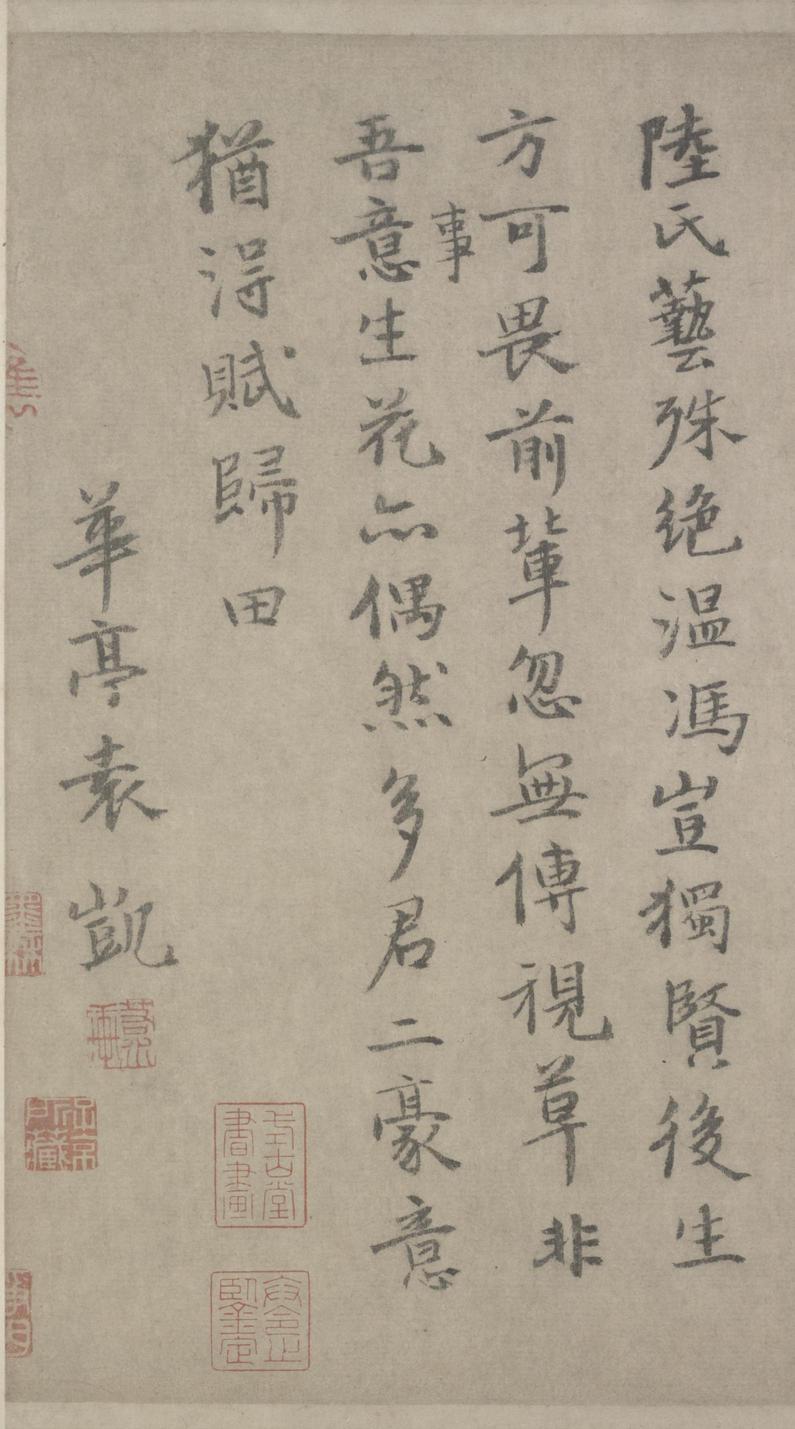 陸氏藝殊絶温馮豈獨賢後生
方可畏前輩忽無傳視草非
事
吾意生花亦偶然多君二豪意
猶得賦歸田
華亭袁凱
式古堂書畫
卞令之鑒定